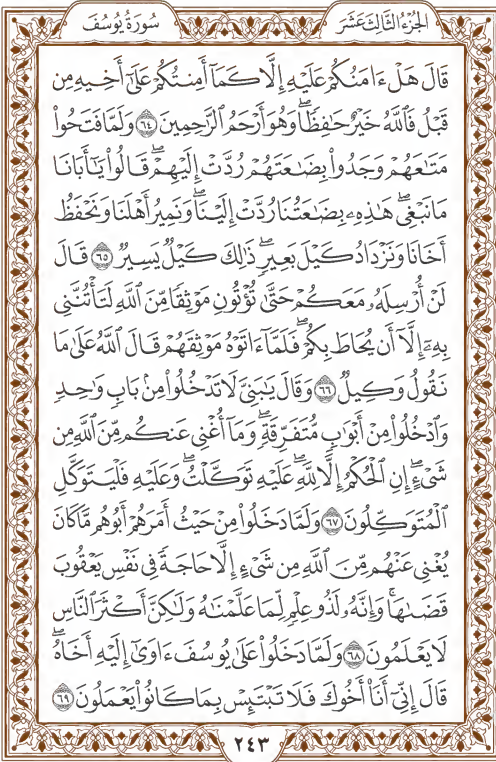 الجزء الثالث عشر
سورة يوسف
قَالَ هَلْ ءَامَنُكُمْ عَلَيْهِ إِلَّا كَمَآ أَمِنتُكُمْ عَلَىٰٓ أَخِيهِ مِن
قَبْلُ فَٱللَّهُ خَيْرٌ حَٰفِظًاۖ وَهُوَ أَرْحَمُ ٱلرَّٰحِمِينَ ٦٤ وَلَمَّا فَتَحُواْ
مَتَٰعَهُمْ وَجَدُواْ بِضَٰعَتَهُمْ رُدَّتْ إِلَيْهِمْۖ قَالُواْ يَٰٓأَبَانَا
مَا نَبْغِيۖ هَٰذِهِۦ بِضَٰعَتُنَا رُدَّتْ إِلَيْنَاۖ وَنَمِيرُ أَهْلَنَا وَنَحْفَظُ
أَخَانَا وَنَزْدَادُ كَيْلَ بَعِيرٖۖ ذَٰلِكَ كَيْلٞ يَسِيرٞ ٦٥ قَالَ
لَنْ أُرْسِلَهُۥ مَعَكُمْ حَتَّىٰ تُؤْتُونِ مَوْثِقٗا مِّنَ ٱللَّهِ لَتَأْتُنَّنِي
بِهِۦٓ إِلَّآ أَن يُحَاطَ بِكُمْۖ فَلَمَّآ ءَاتَوْهُ مَوْثِقَهُمْ قَالَ ٱللَّهُ عَلَىٰ مَا
نَقُولُ وَكِيلٞ ٦٦ وَقَالَ يَٰبَنِيَّ لَا تَدْخُلُواْ مِنۢ بَابٖ وَٰحِدٖ
وَٱدْخُلُواْ مِنْ أَبْوَٰبٖ مُّتَفَرِّقَةٖۖ وَمَآ أُغْنِي عَنكُم مِّنَ ٱللَّهِ مِن
شَيْءٍۖ إِنِ ٱلْحُكْمُ إِلَّا لِلَّهِۖ عَلَيْهِ تَوَكَّلْتُۖ وَعَلَيْهِ فَلْيَتَوَكَّلِ
ٱلْمُتَوَكِّلُونَ ٦٧ وَلَمَّا دَخَلُواْ مِنْ حَيْثُ أَمَرَهُمْ أَبُوهُم مَّا كَانَ
يُغْنِي عَنْهُم مِّنَ ٱللَّهِ مِن شَيْءٍ إِلَّا حَاجَةٗ فِي نَفْسِ يَعْقُوبَ
قَضَىٰهَاۚ وَإِنَّهُۥ لَذُو عِلْمٖ لِّمَا عَلَّمْنَٰهُ وَلَٰكِنَّ أَكْثَرَ ٱلنَّاسِ
لَا يَعْلَمُونَ ٦٨ وَلَمَّا دَخَلُواْ عَلَىٰ يُوسُفَ ءَاوَىٰٓ إِلَيْهِ أَخَاهُۖ
قَالَ إِنِّيٓ أَنَا۠ أَخُوكَ فَلَا تَبْتَئِسْ بِمَا كَانُواْ يَعْمَلُونَ ٦٩
٢٤٣